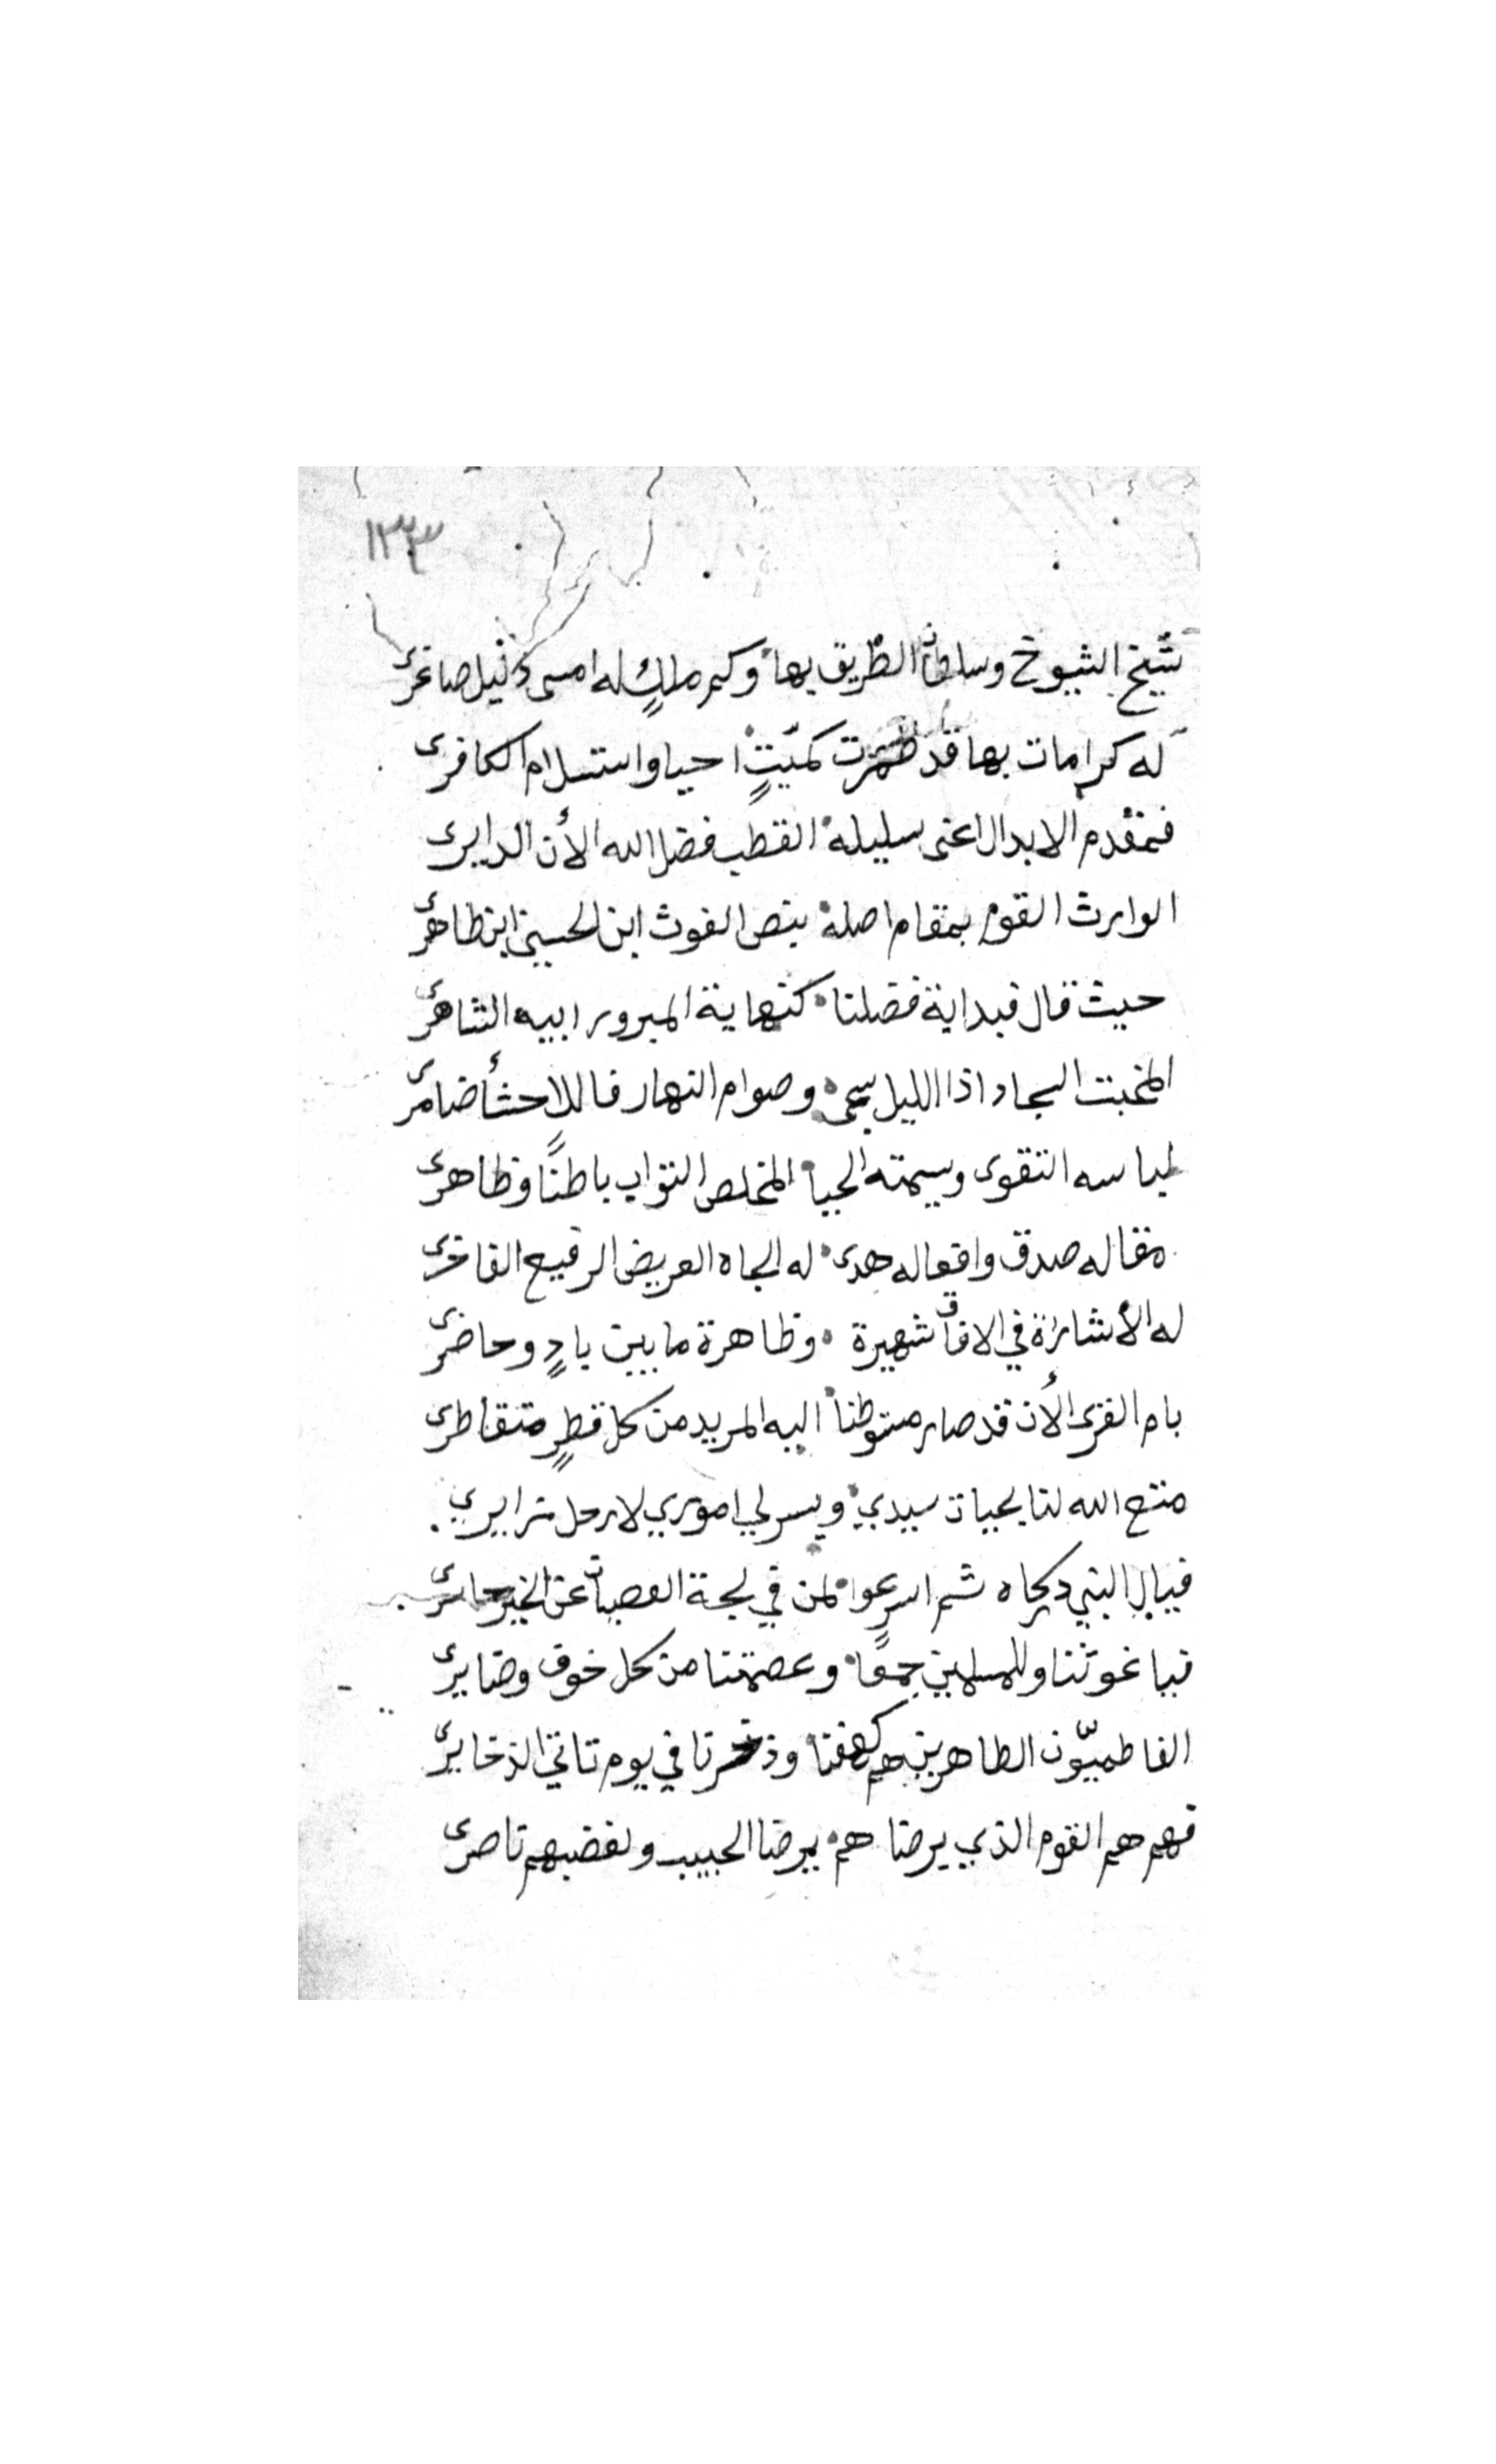 ١٣٣
شيخ الشيوخ وسلطان الطريق بها وكم ملكٍ له امسى ذليل صاغرى
له كرامات بها قد ظهرت كميّتٍ احيا واستسلام الكافرى
فمقدم الابدال اعنى سليله القطب فضل الله الأن الدايرى
الوارث القوم بمقام اصله بنص الغوث ابن الحسين ابن طاهرى
حيث قال فبداية فضلنا كنهاية المبرور ابيه الشاهرى
المخبت السجاد اذا الليل سجى وصوام النهار فاللاحشأ ضامرى
لباسه التقوى وسيمته الحيا المخلص التواب باطنًا وظاهرى
مقاله صدق وافعاله هدى له الجاه العريض الرفيع الفاخرى
له الأشارة في الافاق شهيرة وظاهرة ما بين بادٍ وحاضرى
بام القرى الأن قد صار متوطنا اليه المريد من كل قطرٍ متقاطرى
متع الله لنا بحيات سيدي ويسر لي اموري لارحل زايري
فيال النبي دركاه ثم اسرعوا لمن في لجة العصيان عن الخير حايرى
فيا غوثنا وللمسلمين جمعًا وعصمتنا من كل خوف وضايرى
الفاطميّون الطاهرين هم كهفنا وذخرنا في يوم تاتي الذخايرى
فهم هم القوم الذي يرضاهم يرضا الحبيب ولغضبهم ناصرى